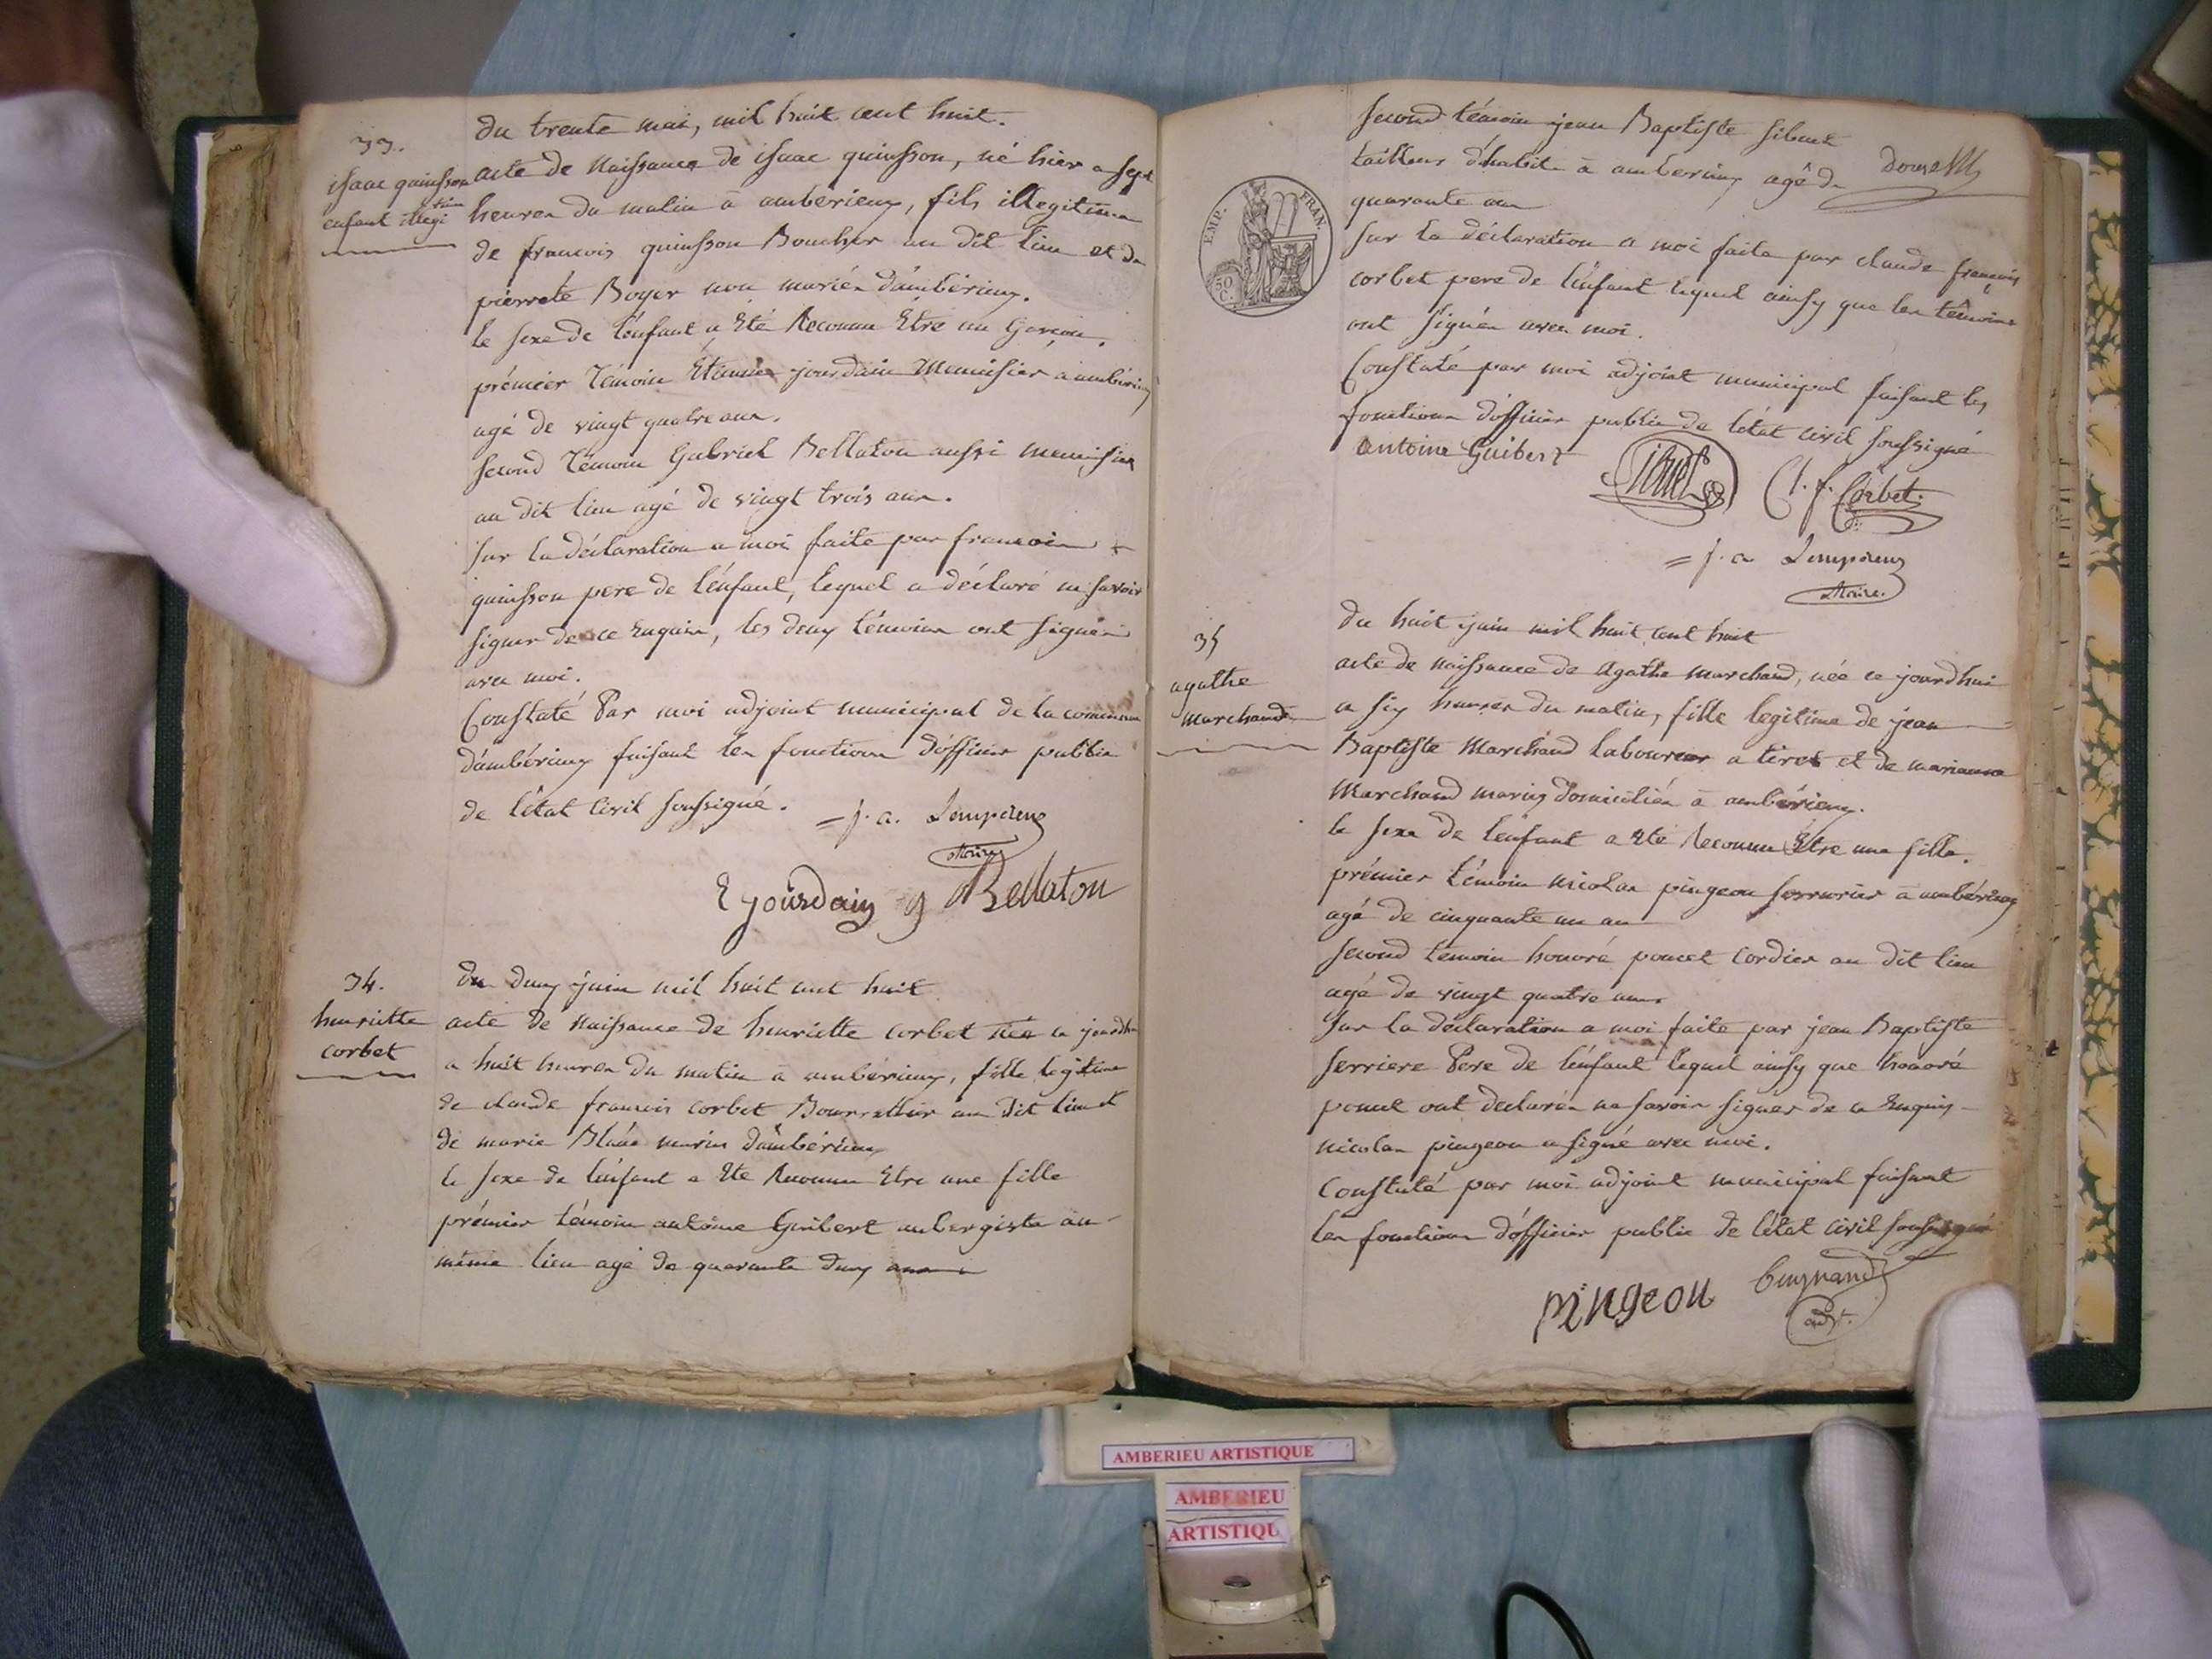 33.
isaac quinsson
enfant illegi
time
du trente mai, mil huit cent huit.
acte de Naissance de isaac quinsson, né hier a sept
heures du matin à amberieux, fils illegitime
de francois quinsson Boucher au dit lieu et de
pierrete Boyer non mariés d'ambérieux.
le sexe de l'enfant a Eté Reconnu Etre un Garçon.
prémier Témoin Étienne jourdain Menuisier a ambérieux
agé de vingt quatre ans.
second Témoin Gabriel Bellaton aussi menuisier
au dit lieu agé de vingt trois ans.
sur la déclaration a moi faite par francois
quinsson pere de l'enfant, lequel a déclaré ne savoir
signer de ce Enquis, les deux témoins ont signés
avec moi.
Constaté Par moi adjoint municipal de la commune
d'ambérieux faisant les fonctions d'officier public
de l'état Civil soussigné. = j. a.
Maire
E jourdain g Bellaton
34.
henriette
corbet
du deux juin mil huit cent huit
acte de Naissance de henriette corbet née ce jourdhui
a huit heures du matin à ambérieux, fille legitime
de claude francois corbet Bourrellier au dit lieu et
de marie mariés d'ambérieux
le sexe de l'enfant a Eté Reconnu Etre une fille
prémier témoin antoine Guibert aubergiste au
même lieu agé de quarante deux ans
second témoin jean Baptiste sibuet
tailleur d'habits à amberieux agé de
quarante ans
EMP. FRAN.
50 C.
sur la déclaration a moi faite par claude françois
corbet pere de l'enfant lequel ainsy que les témoins
ont signés avec moi.
Constaté par moi adjoint municipal faisant les
fonctions d'officier public de l'état Civil soussigné
antoine Guibert
C. f. Corbet
= j. a.
Maire.
35
agathe
marchand
du huit juin mil huit cent huit
acte de naissance de Agathe marchand, née ce jourdhui
a six heures du matin, fille legitime de jean
Baptiste Marchand laboureur a tiret et de marianne
Marchand mariés domiciliés à ambérieux.
le sexe de l'enfant a Eté Reconnu Etre une fille.
prémier témoin nicolas pingeon serrurier à ambérieux
agé de cinquante un an
second témoin honoré poncet Cordier au dit lieu
agé de vingt quatre ans
sur la déclaration a moi faite par jean Baptiste
serriere Pere de l'enfant lequel ainsy que honoré
poncet ont declarés ne savoir signer de ce Enquis
nicolas pingeon a signé avec moi.
Constaté par moi adjoint municipal faisant
les fonctions d'officier public de l'état civil soussigné
pingeon
adjt.
AMBERIEU ARTISTIQUE
AMBERIEU
ARTISTIQU